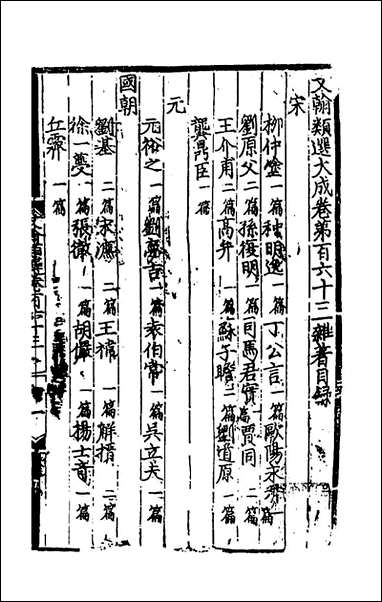 文翰類選大成卷第百六十三雜著目録
宋
柳仲塗一篇种明逸一篇丁公言一篇歐陽永叔一篇
劉原父二篇孫復明一篇司馬君實一篇賈同二篇
王介甫二篇高弁一篇蘇子瞻二篇劉道原一篇
龔鼎臣一篇
元
元裕之一篇劉夢吉一篇袁伯常一篇吳立夫一篇
國朝
劉基二篇宋濂二篇王禕一篇解縉二篇
徐一夔一篇張徹一篇胡儼一篇楊士奇一篇
丘霽一篇